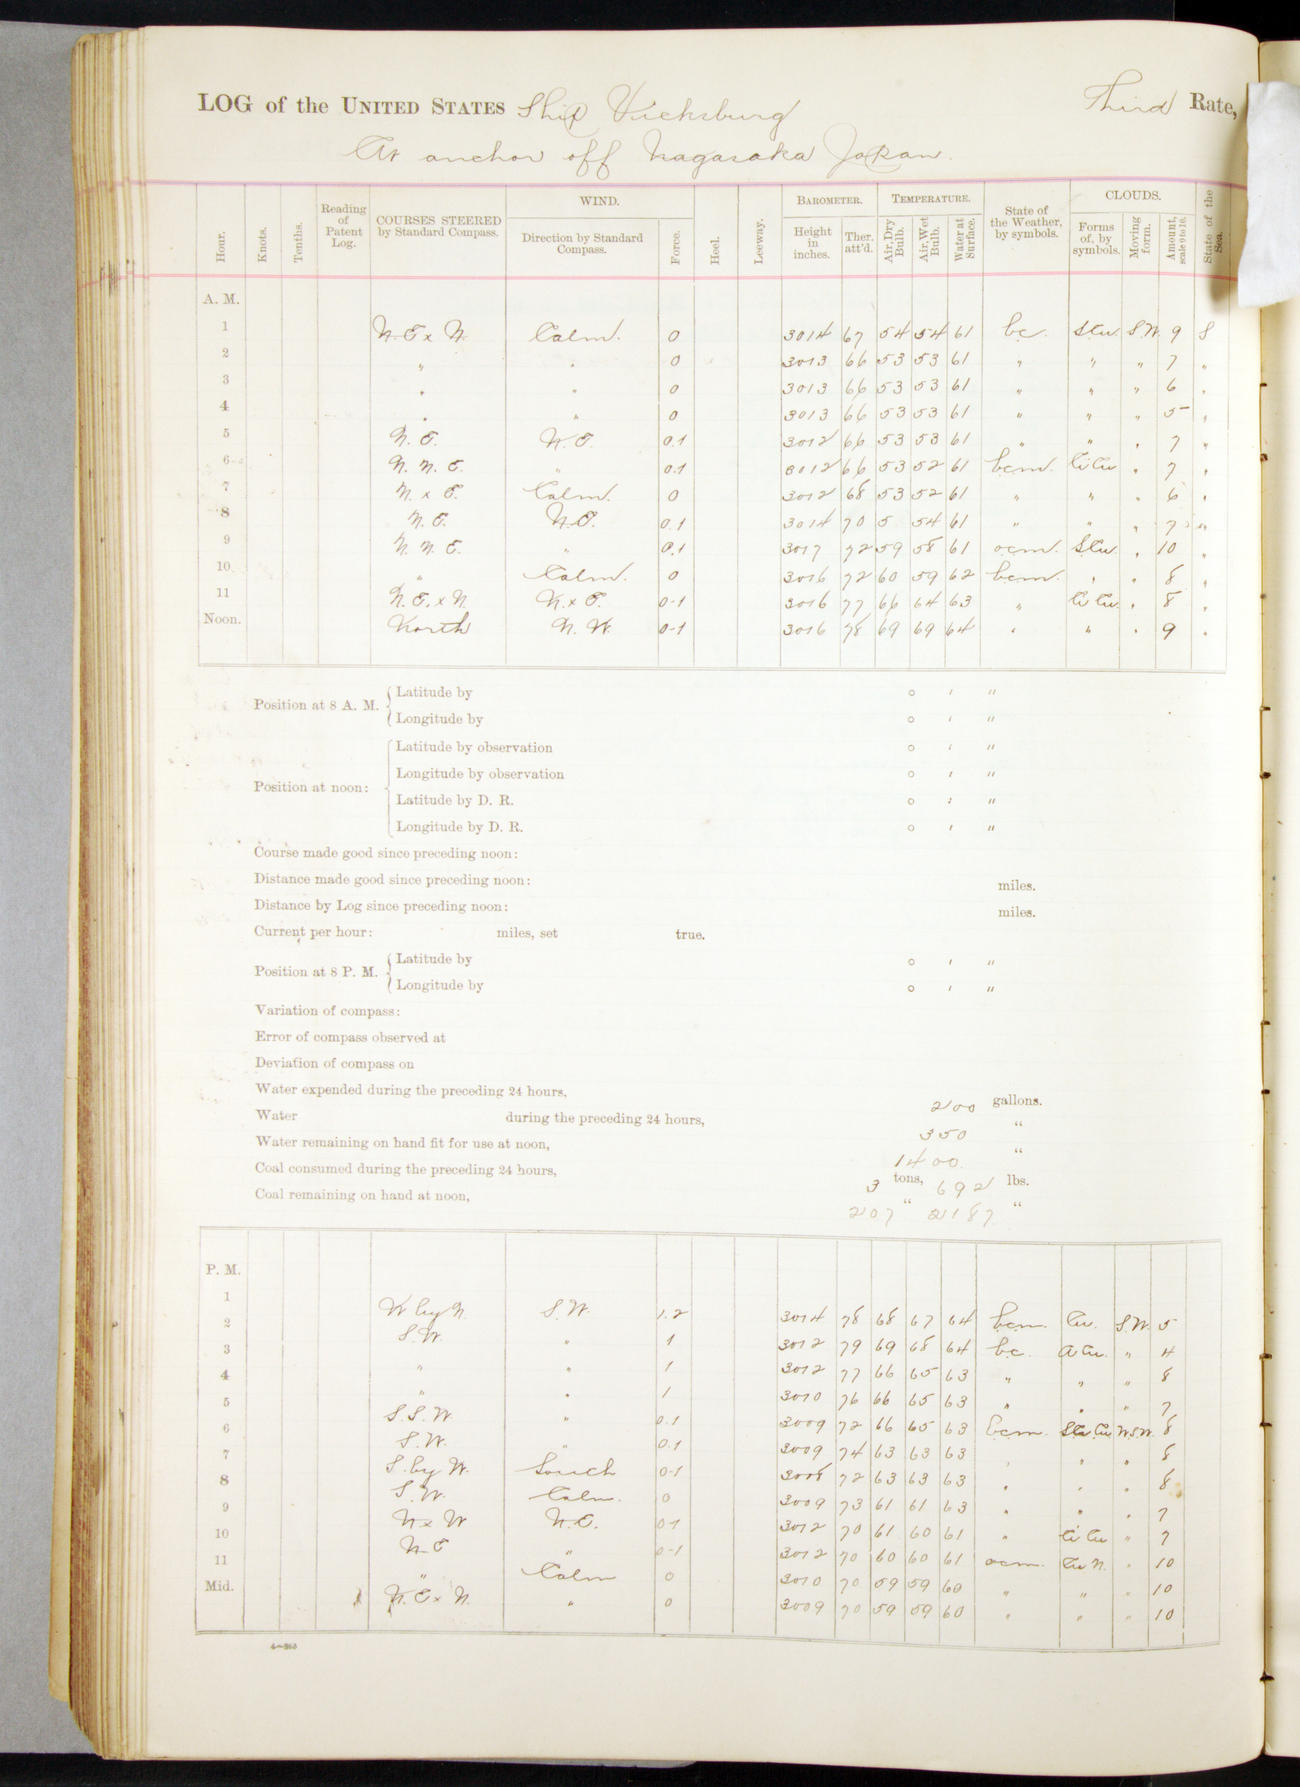 LOG of the UNITED STATES Ship Vicksburg Third Rate,
At anchor off Nagasaka Japan.
Hour. Knots. Tenths. Reading of Patent Log. COURSES STEERED by Standard Compass. WIND. Direction by Standard Compass. Force. Heel. Leeway. BAROMETER. Height in inches. Ther. att'd. TEMPERATURE. Air, Dry Bulb. Air, Wet Bulb. Water at Surface. State of the Weather, by symbols. CLOUDS. Forms of, by symbols. Moving form. Amount, scale 0 to 10. State of the Sea.
A. M.
1 N.E x N. Calm. 0 3014 67 54 54 61 bc. Stcu S.W. 9 S
2 " " 0 3013 66 53 53 61 " " " 7 "
3 " " 0 3013 66 53 53 61 " " " 6 "
4 " " 0 3013 66 53 53 61 " " " 5 "
5 N. E. N.E. 0.1 3012 66 53 53 61 " " " 7 "
6 N. N. E. " 0.1 3012 66 53 52 61 bcm. Ci Cu " 7 "
7 N. x E. Calm. 0 3012 68 53 52 61 " " " 6 "
8 N. E. N.E. 0.1 3014 70 5 54 61 " " " 7 "
9 N. N. E. " 0.1 3017 72 59 58 61 ocm. Stcu. " 10 "
10 " Calm. 0 3016 72 60 59 62 bcm. " " 8 "
11 N. E. x N. N. x E. 0-1 3016 77 66 64 63 " Ci Cu. " 8 "
Noon. North N. W. 0-1 3016 78 69 69 64 " " " 9 "
Position at 8 A. M. Latitude by ° ′ ″
Longitude by ° ′ ″
Position at noon: Latitude by observation ° ′ ″
Longitude by observation ° ′ ″
Latitude by D. R. ° ′ ″
Longitude by D. R. ° ′ ″
Course made good since preceding noon:
Distance made good since preceding noon: miles.
Distance by Log since preceding noon: miles.
Current per hour: miles, set true.
Position at 8 P. M. Latitude by ° ′ ″
Longitude by ° ′ ″
Variation of compass:
Error of compass observed at
Deviation of compass on
Water expended during the preceding 24 hours, 200 gallons.
Water during the preceding 24 hours, 350 "
Water remaining on hand fit for use at noon, 1400. "
Coal consumed during the preceding 24 hours, 3 tons, 692 lbs.
Coal remaining on hand at noon, 207 " 2187 "
P. M.
1 W by N. S.W. 1.2 3014 78 68 67 64 bcm. Cu. S.W. 5
2 S.W. " 1 3012 79 69 68 64 bc. A Cu. " 4
3 " " 1 3012 77 66 65 63 " " " 8
4 " " 1 3010 76 66 65 63 " " " 7
5 S.S.W. " 0.1 3009 72 66 65 63 bcm. Sta Cu W.S.W. 8
6 S.W. " 0.1 3009 74 63 63 63 " " " 8
7 S. by W. South 0-1 3008 72 63 63 63 " " " 8
8 S.W. Calm. 0 3009 73 61 61 63 " " " 7
9 N x W N.E. 0 1 3012 70 61 60 61 " Ci Cu " 7
10 N-E " 0-1 3012 70 60 60 61 ocm. Cu N. " 10
11 " Calm 0 3010 70 59 59 60 " " " 10
Mid. N. E x N. " 0 3009 70 59 59 60 " " " 10